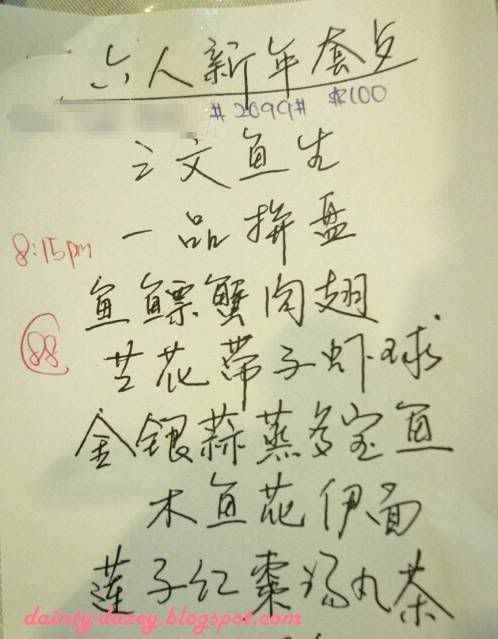 六人新年套点
#2099# $100
三文鱼生
一品拼盘
8:15pm
鱼鳔蟹肉翅
88
兰花带子虾球
金银蒜蒸多宝鱼
木鱼花伊面
莲子红枣汤丸茶
dainty-dazey.blogspot.com